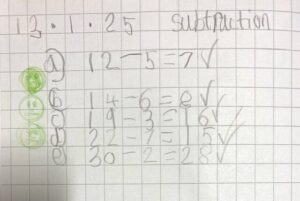 13.1.25 subtraction
a) 12-5=7✓
b) 14-6=8✓
c) 19-3=16✓
d) 22-7=15✓
e) 30-2=28✓